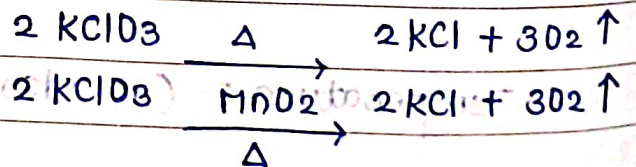 2 KClO3 Δ→ 2KCl + 3O2 ↑
2 KClO3 MnO2→ 2KCl + 3O2 ↑
Δ